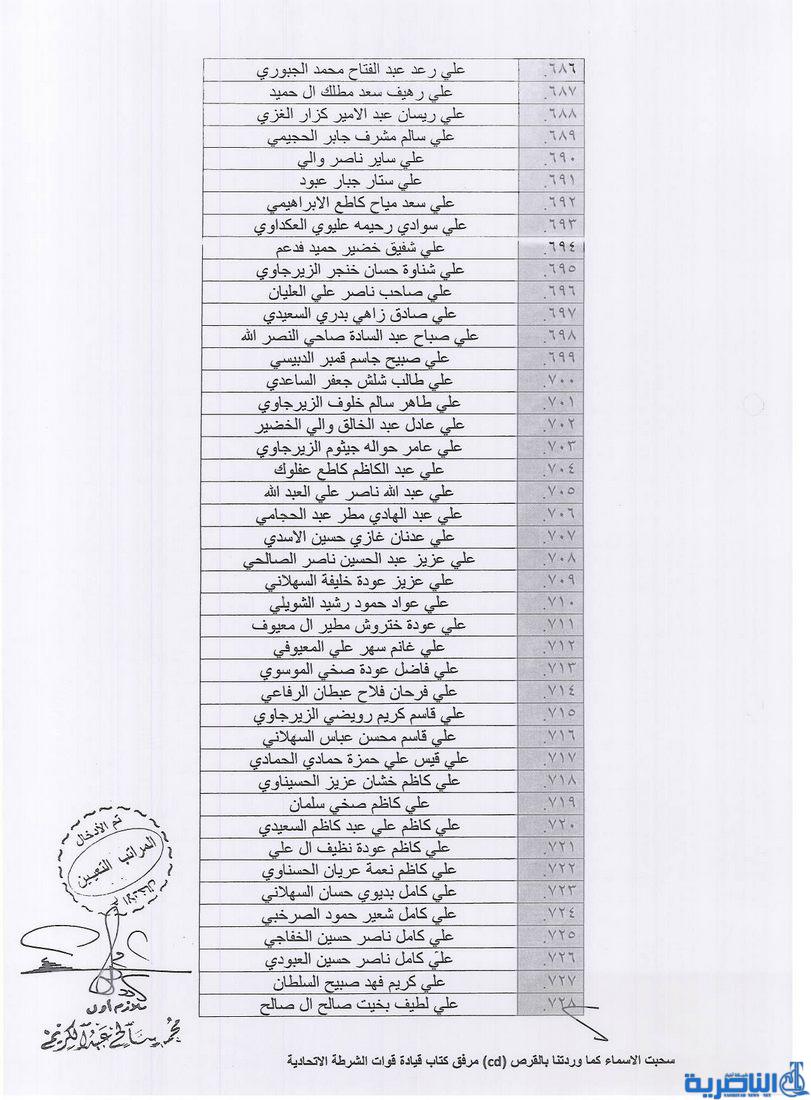 ٦٨٦. علي رعد عبد الفتاح محمد الجبوري
٦٨٧. علي رهيف سعد مطلك ال حميد
٦٨٨. علي ريسان عبد الامير كزار الغزي
٦٨٩. علي سالم مشرف جابر الحجيمي
٦٩٠. علي ساير ناصر والي
٦٩١. علي ستار جبار عبود
٦٩٢. علي سعد مياح كاطع الابراهيمي
٦٩٣. علي سوادي رحيمه عليوي العكداوي
٦٩٤. علي شفيق خضير حميد فدعم
٦٩٥. علي شناوة حسان خنجر الزيرجاوي
٦٩٦. علي صاحب ناصر علي العليان
٦٩٧. علي صادق زاهي بدري السعيدي
٦٩٨. علي صباح عبد السادة صاحي النصر الله
٦٩٩. علي صبيح جاسم قمبر الدبيسي
٧٠٠. علي طالب شلش جعفر الساعدي
٧٠١. علي طاهر سالم خلوف الزيرجاوي
٧٠٢. علي عادل عبد الخالق والي الخضير
٧٠٣. علي عامر حواله جيثوم الزيرجاوي
٧٠٤. علي عبد الكاظم كاطع عفلوك
٧٠٥. علي عبد الله ناصر علي العبد الله
٧٠٦. علي عبد الهادي مطر عبد الحجامي
٧٠٧. علي عدنان غازي حسين الاسدي
٧٠٨. علي عزيز عبد الحسين ناصر الصالحي
٧٠٩. علي عزيز عودة خليفة السهلاني
٧١٠. علي عواد حمود رشيد الشويلي
٧١١. علي عودة ختروش مطير ال معيوف
٧١٢. علي غانم سهر علي المعيوفي
٧١٣. علي فاضل عودة صخي الموسوي
٧١٤. علي فرحان فلاح عبطان الرفاعي
٧١٥. علي قاسم كريم رويضي الزيرجاوي
٧١٦. علي قاسم محسن عباس السهلاني
٧١٧. علي قيس علي حمزة حمادي الحمادي
٧١٨. علي كاظم خشان عزيز الحسيناوي
٧١٩. علي كاظم صخي سلمان
٧٢٠. علي كاظم علي عبد كاظم السعيدي
٧٢١. علي كاظم عودة نظيف ال علي
٧٢٢. علي كاظم نعمة عريان الحسناوي
٧٢٣. علي كامل بديوي حسان السهلاني
٧٢٤. علي كامل شعير حمود الصرخبي
٧٢٥. علي كامل ناصر حسين الخفاجي
٧٢٦. علي كامل ناصر حسين العبودي
٧٢٧. علي كريم فهد صبيح السلطان
٧٢٨. علي لطيف بخيت صالح ال صالح
تم الأدخال
المراتب التعيين
ملازم أول
محمد صالح عبد الكريم
سحبت الاسماء كما وردتنا بالقرص (cd) مرفق كتاب قيادة قوات الشرطة الاتحادية
شبكة اخبار
الناصرية
NASIRIYAH NEWS NET